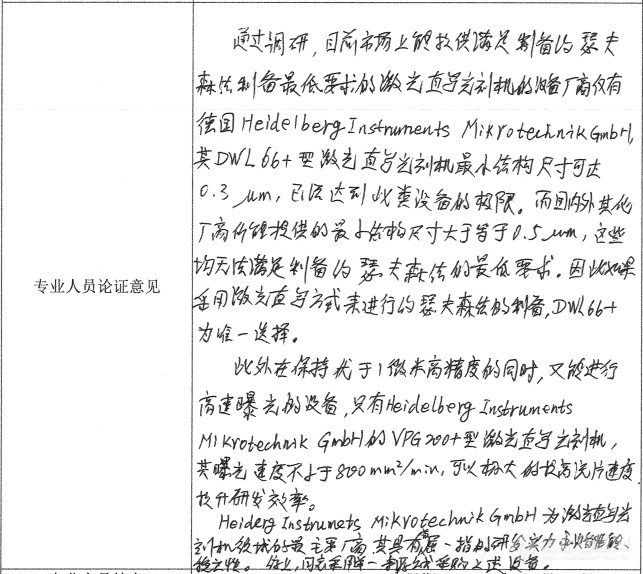 专业人员论证意见
通过调研，目前市场上能提供满足制备约瑟夫
森结制备最低要求的激光直写光刻机的设备厂商仅有
德国Heidelberg Instruments Mikrotechnik GmbH,
其DWL66+型激光直写光刻机最小结构尺寸可达
0.3 μm, 已经达到此类设备的极限。而国内外其他
厂商所能提供的最小结构尺寸大于等于0.5μm, 这些
均无法满足制备约瑟夫森结的最低要求。因此如果
采用激光直写方式来进行约瑟夫森结的制备,DWL66+
为唯一选择。
此外在保持优于1微米高精度的同时,又能进行
高速曝光的设备,只有Heidelberg Instruments
Mikrotechnik GmbH的VPG200+型激光直写光刻机,
其曝光速度不小于800mm²/min, 可以极大的提高流片速度
提升研发效率。
Heiderg Instrumets Mikrotechnik GmbH为激光直写光
刻机领域的最主要厂商,其具有屈一指的研
稳定性。综上,同意采用单一来源方式采购上述设备。